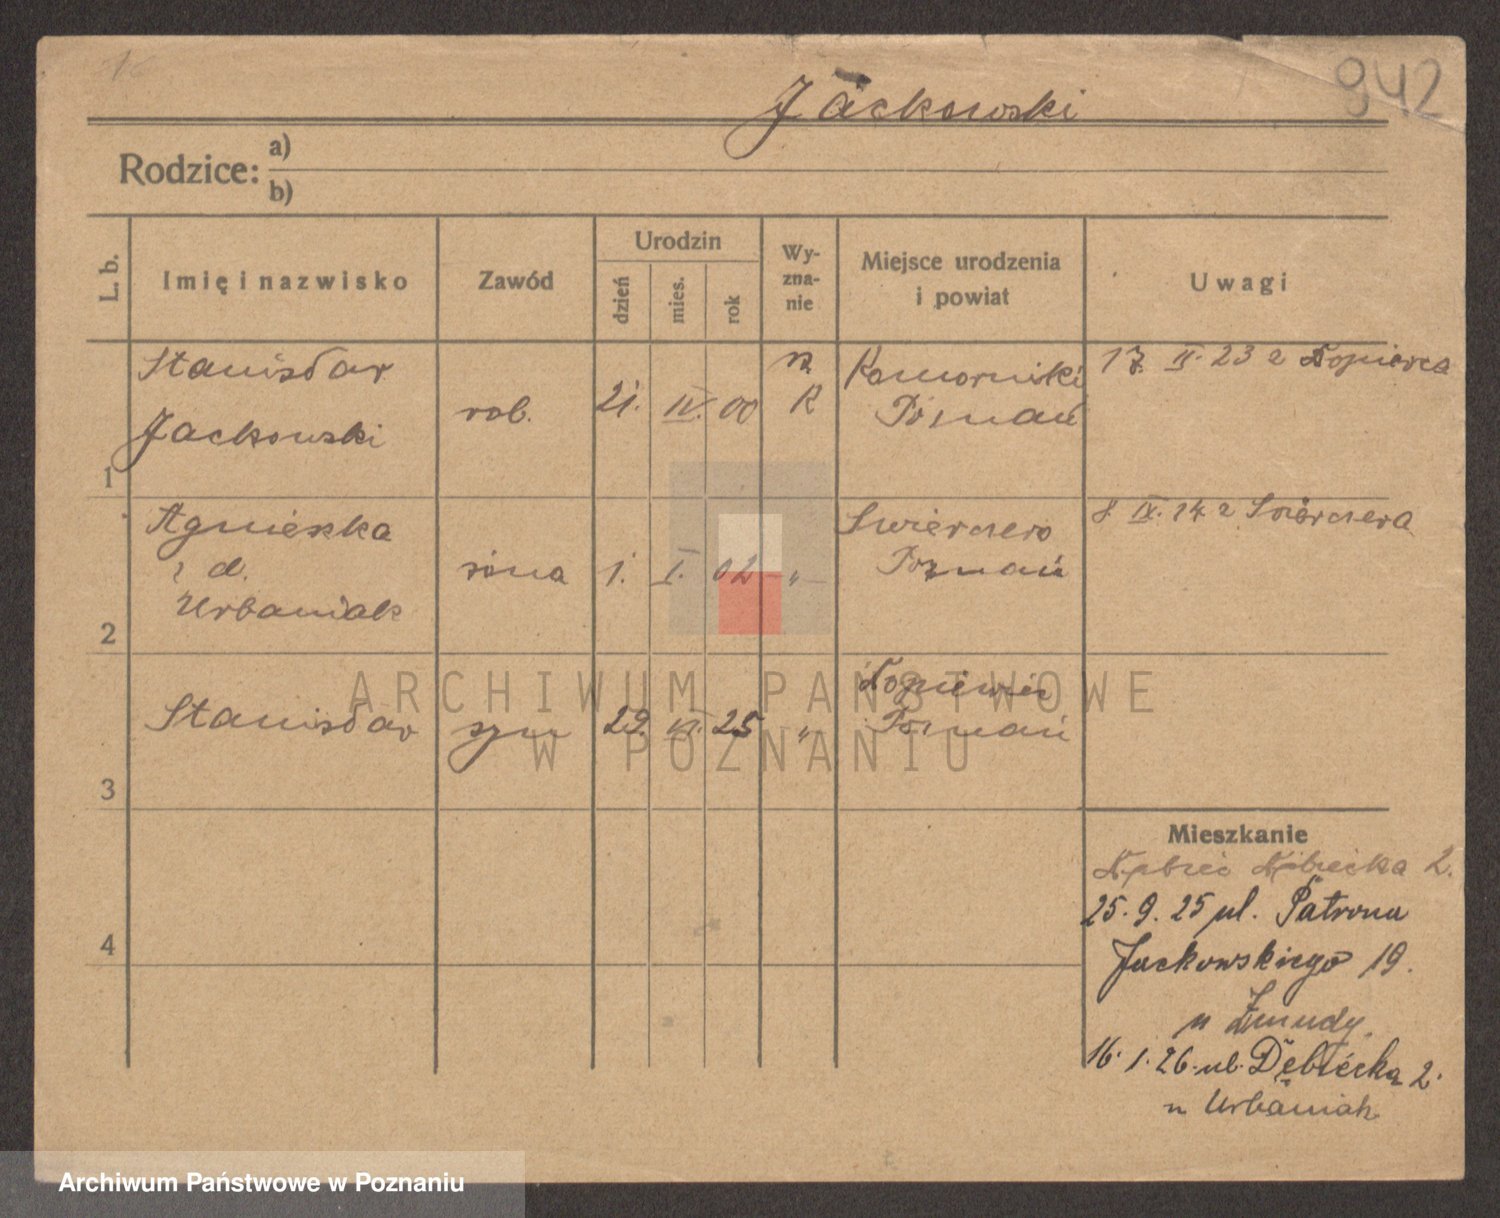 942
Jackowski
Rodzice: a)
b)
L. b.
Imię i nazwisko
Zawód
Urodzin
dzień
mies.
rok
Wy-
zna-
nie
Miejsce urodzenia
i powiat
Uwagi
1
Stanisław
Jackowski
rob.
21. IV. 00
R
K
Komorniki
Poznań
17. II. 23 z
2
Agnieszka
z d.
Urbaniak
żona
1. I. 02
"
Świerczewo
Poznań
8 IX. 14 z Świerczewa
3
Stanisław
syn
29. VI. 25
"
Poznań
4
Mieszkanie
Dębiec Dębiecka 2.
25.9.25 ul. Patrona
Jackowskiego 19.
u Żmudy.
16.1.26. ul. Dębiecka 2.
u Urbaniak
ARCHIWUM PAŃSTWOWE
W POZNANIU
Archiwum Państwowe w Poznaniu